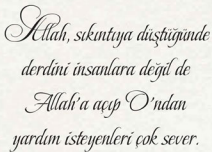 Allah, sıkıntıya düştüğünde
derdini insanlara değil de
Allah'a açıp O'ndan
yardım isteyenleri çok sever.